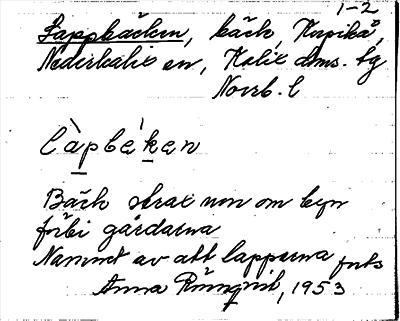 1-2
Lappbäcken, bäck, Korpikå,
Nederkalix sn, Kalix dms. tg
Norrb. l
làpbeken
Bäck strax norr om byn
förbi gårdarna
Namnet av att lapparna forts
Anna Rönnqvist, 1953